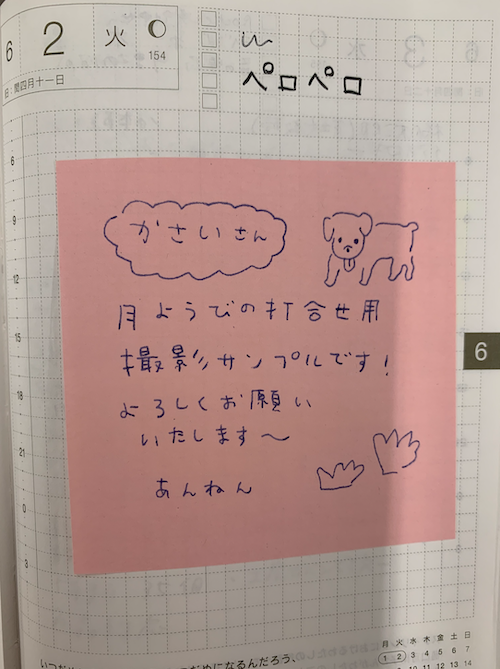 6 2 火
154
旧:閏四月十一日
ペロペロ
かさいさん
月ようびの打合せ用
撮影サンプルです!
よろしくお願い
いたします〜
あんねん
6
9
12
15
18
21
0
3
6
月 火 水 木 金 土 日
1 2 3 4 5 6 7
8 9 10 11 12 13 14